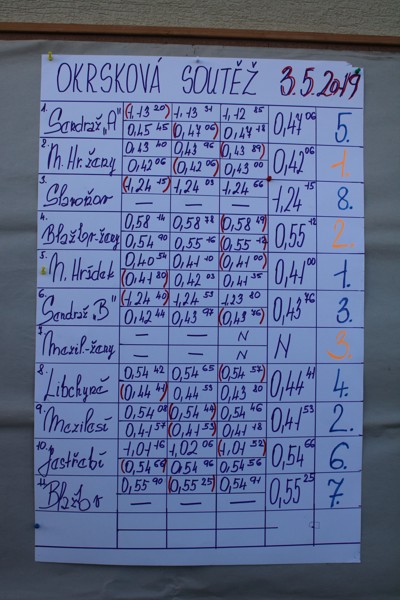 OKRSKOVÁ SOUTĚŽ 3.5.2019
1. Sendraž „A" (1,13 20) 1,13 31 1,12 85 0,47 06 5.
0,45 45 (0,47 06) 0,47 18
2. N. Hr. žany 0,43 40 0,43 96 (0,43 89) 0,42 06 1.
0,42 06 (0,42 06) 0,43 00
3. Slavoňov (1,24 15) 1,24 03 1,24 66 1,24 15 8.
— — —
4. Blažkov-žany 0,58 14 0,58 78 (0,58 49) 0,55 12 2.
0,54 90 0,55 16 (0,55 12)
5. N. Hrádek 0,40 54 0,41 10 (0,41 00) 0,41 00 1.
(0,41 80) 0,42 03 0,41 35
6. Sendraž „B" (1,24 40) 1,24 53 1,23 20 0,43 76 3.
0,42 44 0,43 97 (0,43 76)
7. Mezil.-žany — — N N 3.
— — N
8. Libchyně 0,54 42 0,54 65 (0,54 57) 0,44 41 4.
(0,44 41) 0,44 53 0,43 80
9. Mezilesí 0,54 08 (0,54 44) 0,54 46 0,41 53 2.
0,41 57 (0,41 53) 0,41 18
10. Jestřebí 1,01 16 1,02 06 (1,01 52) 0,54 66 6.
(0,54 66) 0,54 96 0,54 56
11. Blažkov 0,55 90 (0,55 25) 0,54 91 0,55 25 7.
— — —